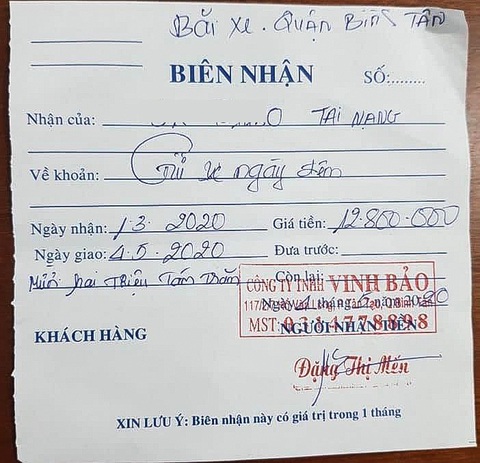 Bãi xe. Quận Bình TÂN
BIÊN NHẬN
SỐ:........
Nhận của: TAI NẠNG
Về khoản: Giữ xe ngày đêm
Ngày nhận: 1-3-2020 Giá tiền: 12.800.000
Ngày giao: 4-5-2020 Đưa trước:
Mười hai Triệu Tám Trăm
Còn lại:
CÔNG TY TNHH VINH BẢO
MST:
KHÁCH HÀNG
NGƯỜI NHẬN TIỀN
Đặng Thị Mến
XIN LƯU Ý: Biên nhận này có giá trị trong 1 tháng